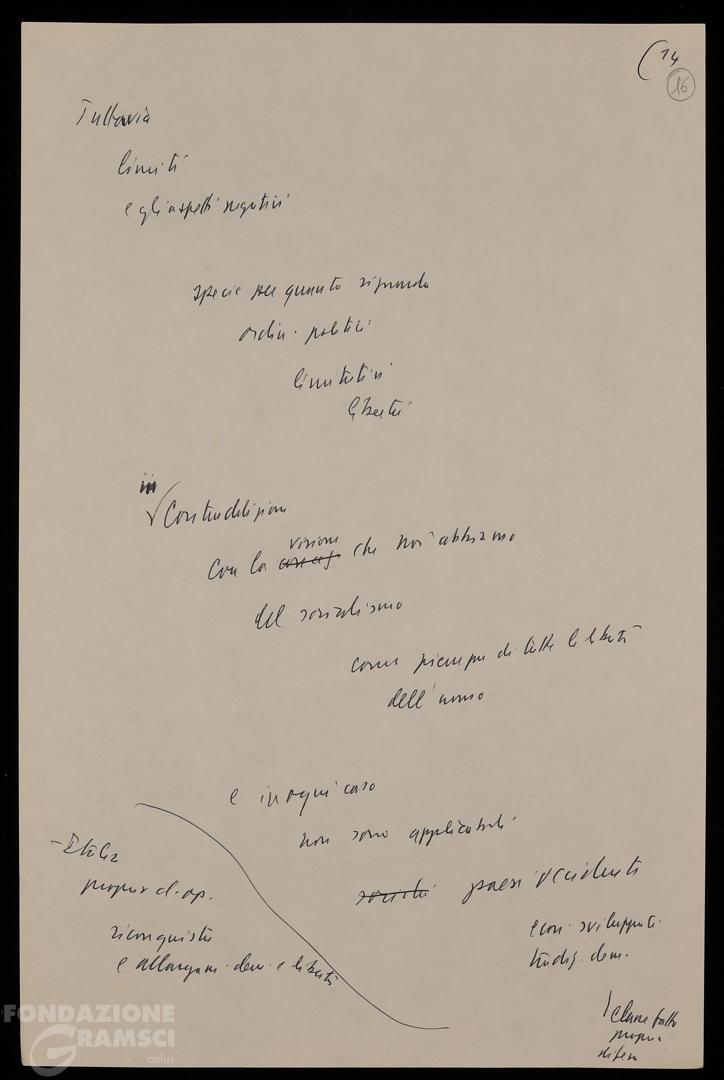 (14
16
Tuttavia
limiti
e gli aspetti negativi
specie per quanto riguarda
ordin. politici
limitativi
libertà
in contraddizione
con la visione che noi abbiamo
del socialismo
come pienezza di tutte le libertà
dell'uomo
e in ogni caso
non sono applicabili
paesi occidenti
econ. sviluppati
tradiz. dem.
classe
propria
difesa
- Italia
propr. cl. op.
riconquista
e allargam. dem. e libertà
FONDAZIONE
GRAMSCI
onlus